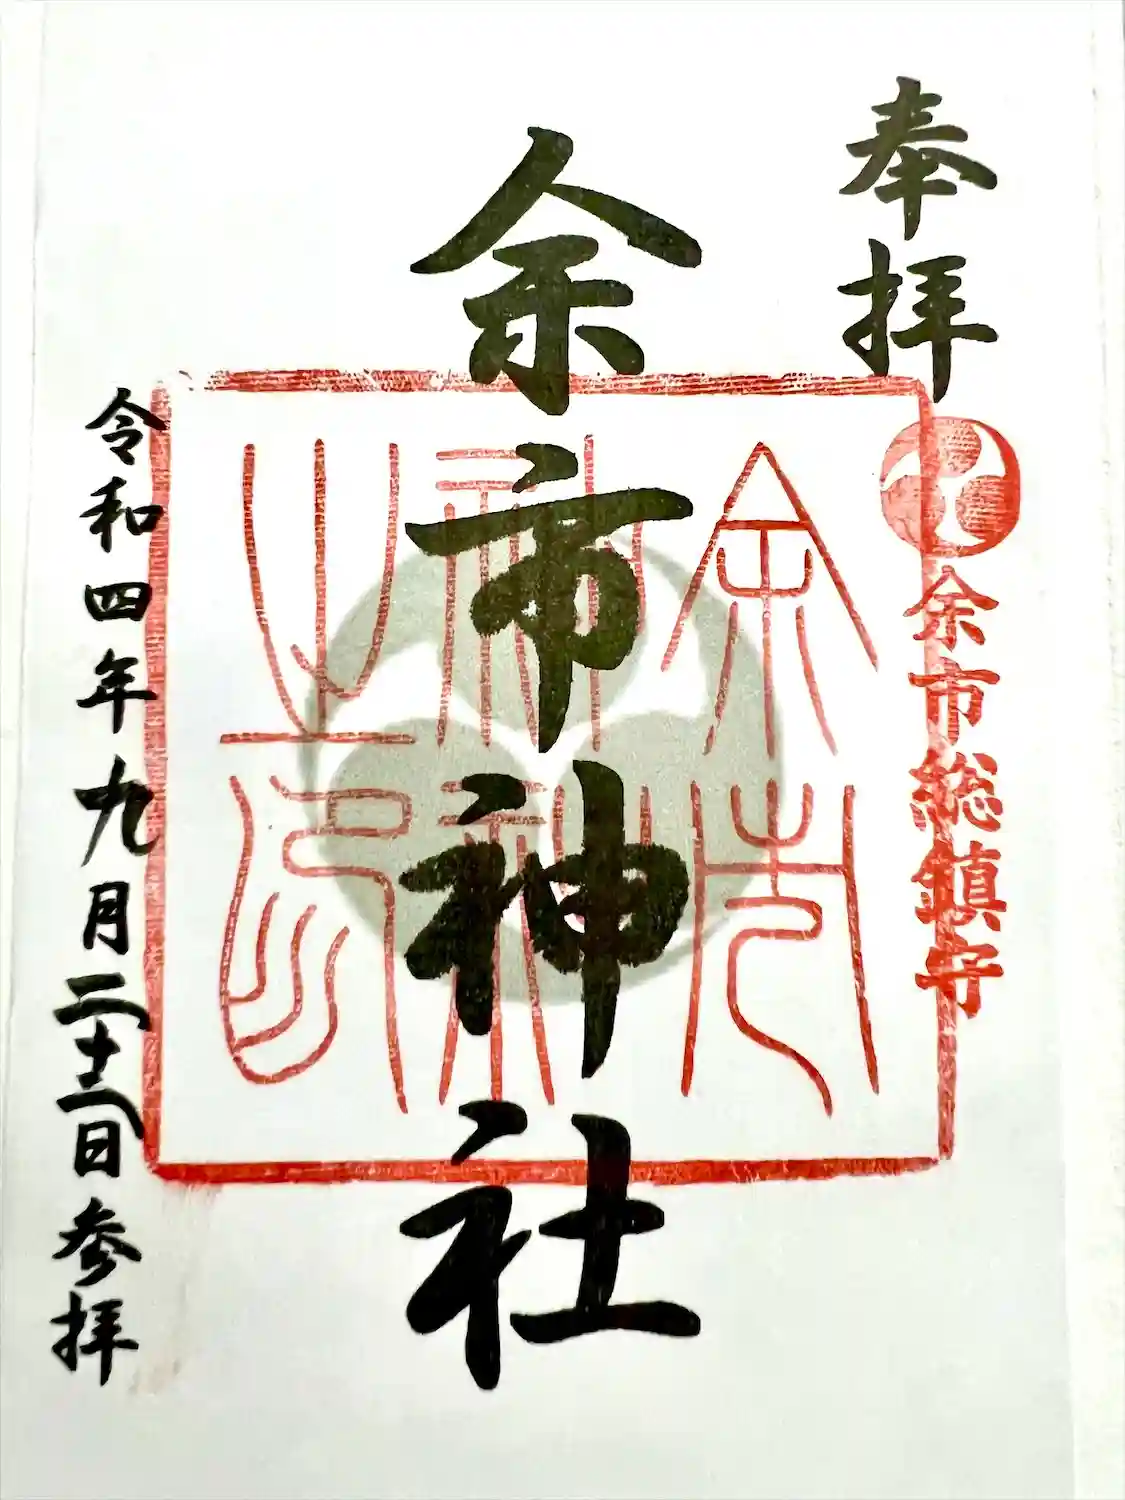 奉拝
余市総鎮守
余市神社
余市
神社
之印
令和四年九月二十三日参拝